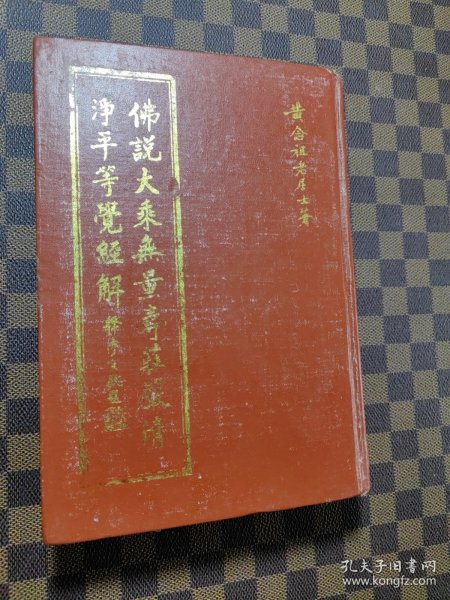 黄念祖老居士著
佛説大乘無量壽莊嚴清
淨平等覺經解
孔夫子旧書网
www.kongfz.com